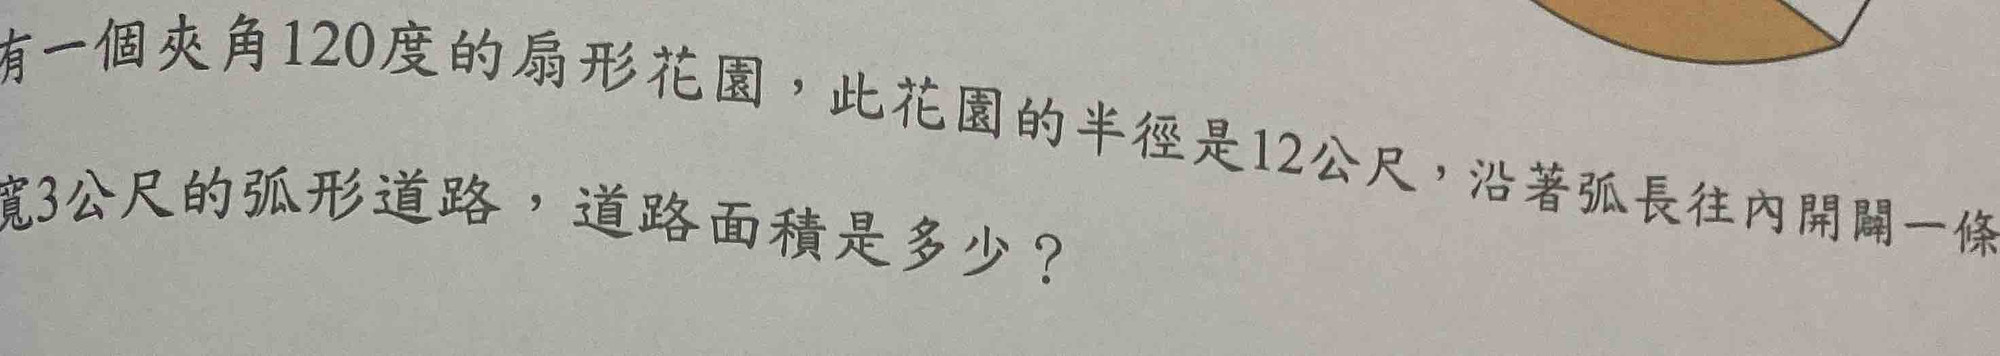 有一個夾角120度的扇形花園，此花園的半徑是12公尺，沿著弧長往內開闢一條
寬3公尺的弧形道路，道路面積是多少？